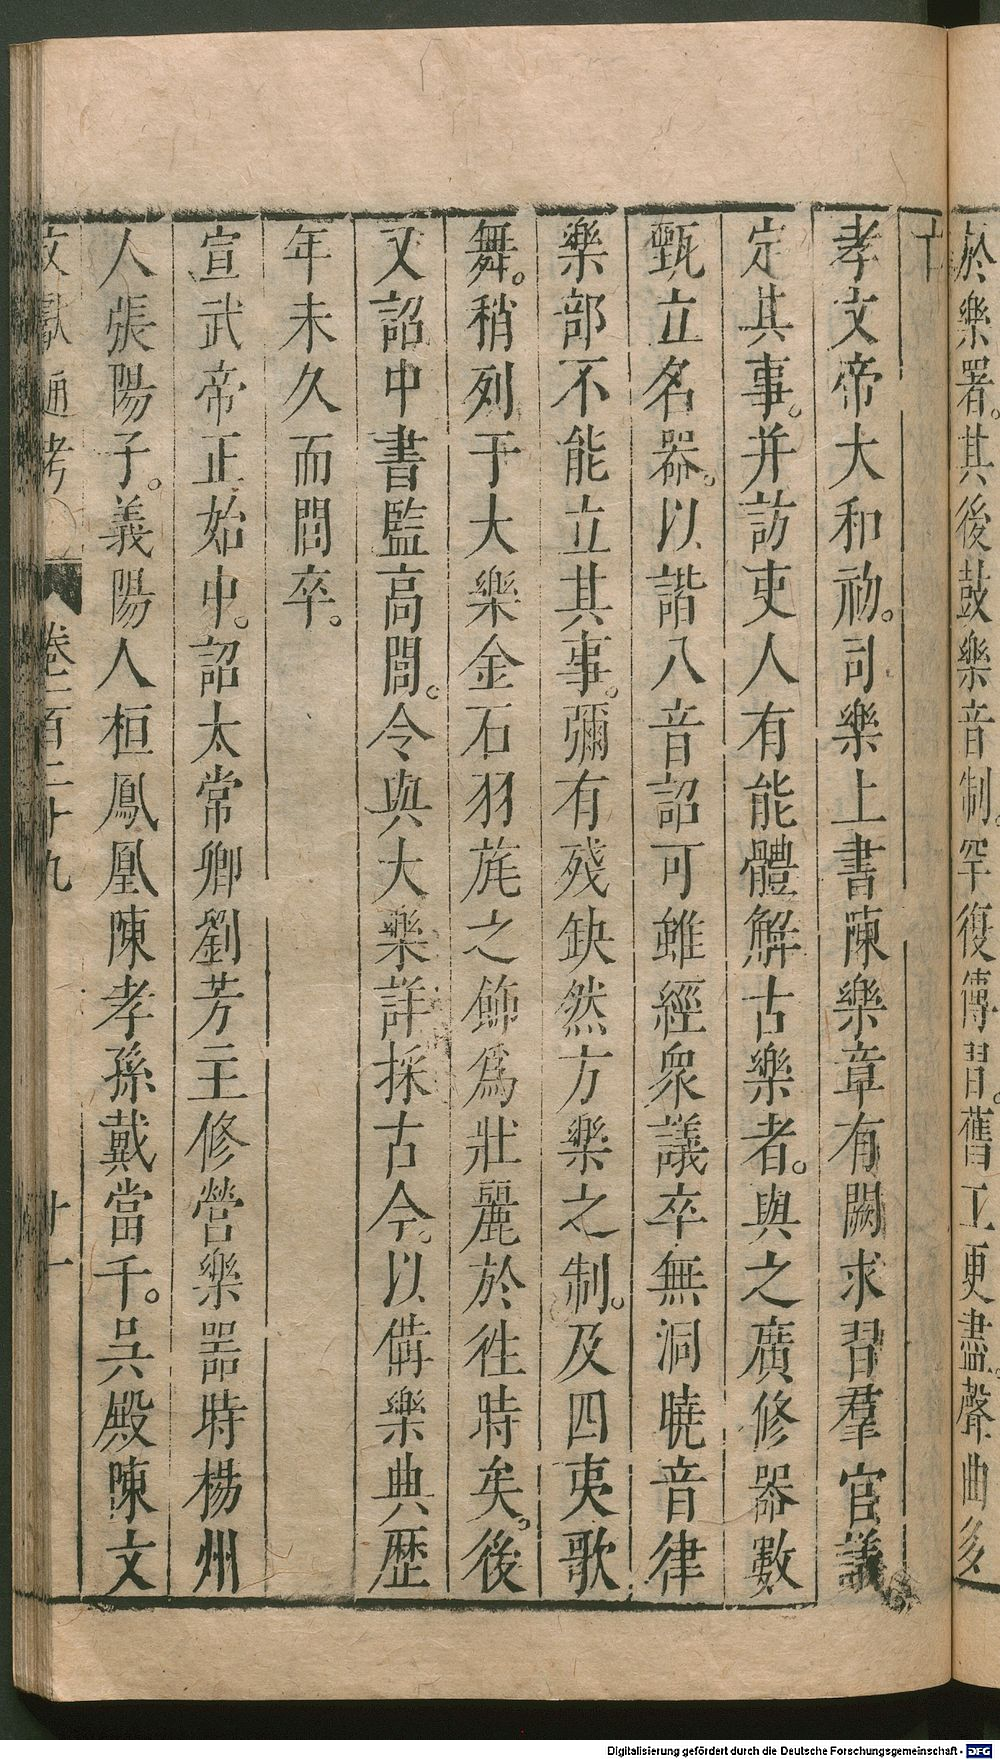 於樂署。其後鼓樂音制。罕復傳習。舊工更盡。聲曲多
亡
孝文帝大和初。司樂上書陳樂章有闕求習羣官議
定其事。并訪吏人有能體解古樂者。與之廣修器數
甄立名器。以諧八音詔可雖經衆議卒無洞曉音律
樂部不能立其事。彌有殘缺然方樂之制。及四夷歌
舞。稍列于大樂金石羽旄之飾爲壯麗於往時矣。後
又詔中書監高閭。令與大樂詳採古今。以備樂典歷
年未久而閭卒。
宣武帝正始中。詔太常卿劉芳主修營樂器時楊州
人張陽子。義陽人桓鳳凰陳孝孫戴當千。吳殿陳文
文獻通考 卷一百二十九 廿一
Digitalisierung gefördert durch die Deutsche Forschungsgemeinschaft - DFG